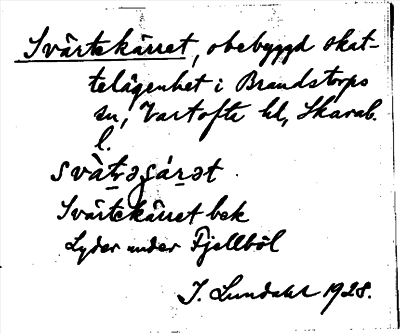 Svärtekärret, obebyggd skat-
telägenhet i Brandstorps
sn, Vartofta hd, Skarab.
l.
svàt̠rəgár̠ət
Svärtekärret bek
Lyder under Fjellbòl
J. Lundahl 1928.